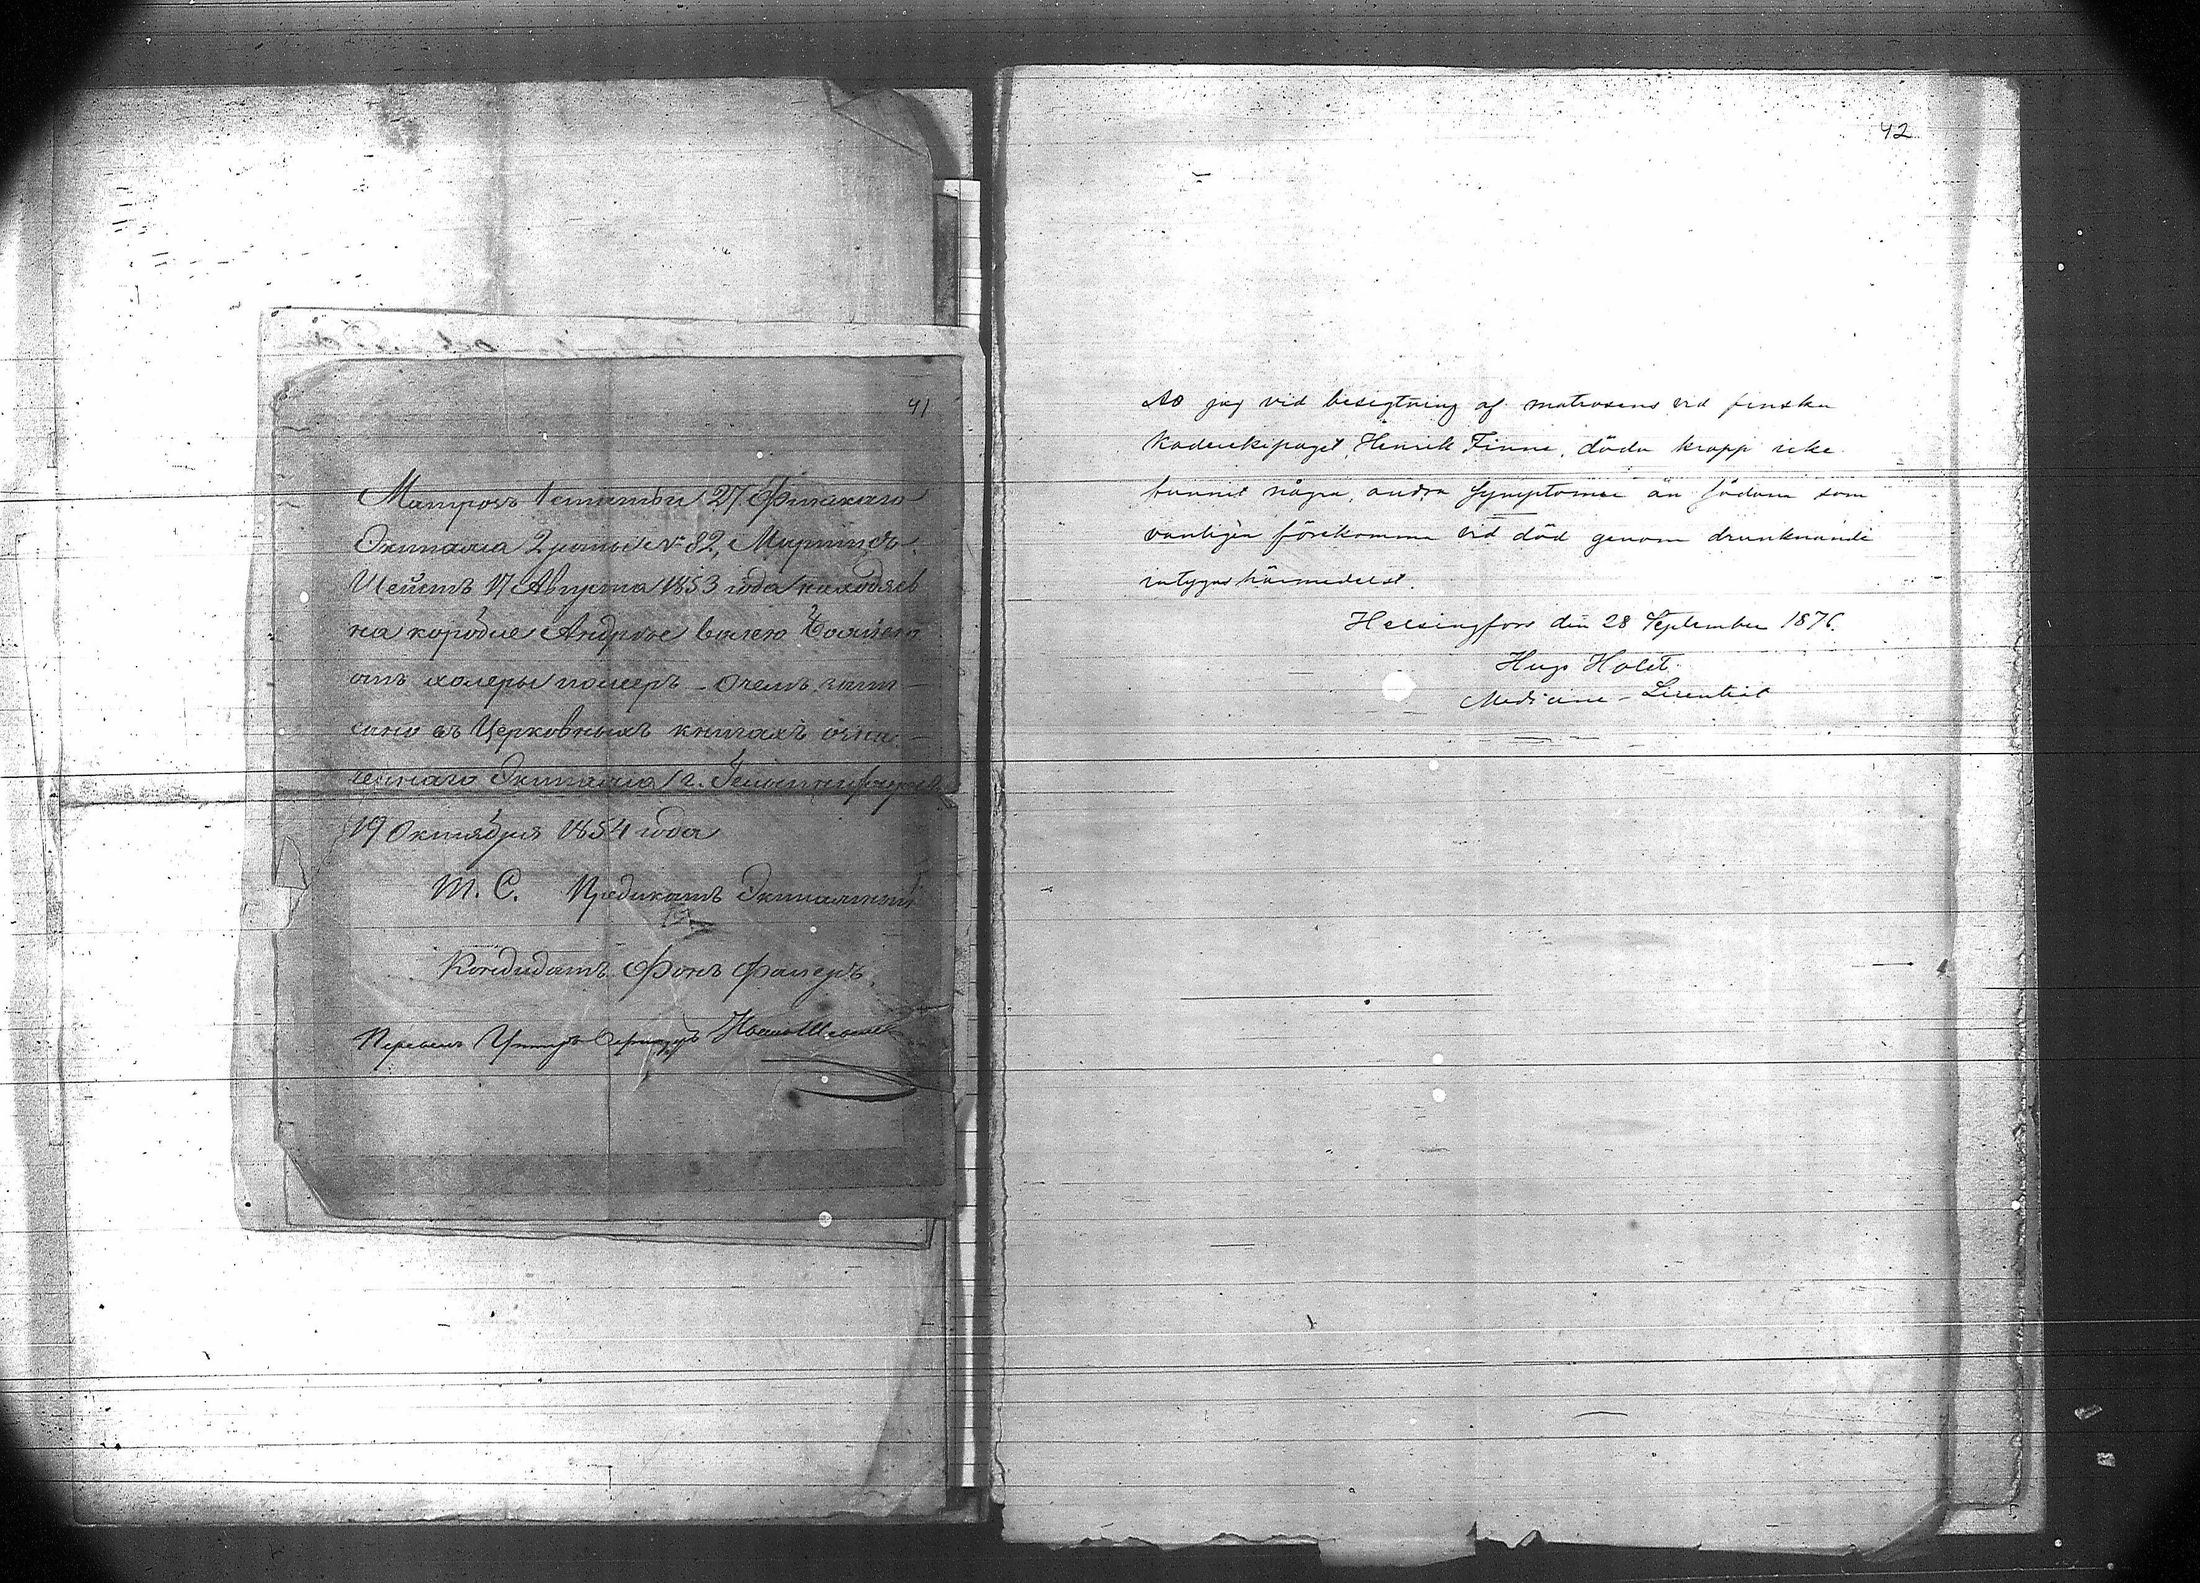 41
Матросъ 1 статьи 27 Финскаго
Экипажа 2 роты № 82, Мартинъ
17 Августа 1853 года находясь
на корабле Андрое волею Божіею
отъ холеры померъ – О чемъ запи-
сано въ Церковныхъ книгахъ озна-
ченнаго Экипажа г. Гельсингфорсъ
19 Октября 1854 года
М. С. Предикатъ Экипажный
Кандидатъ Фонъ
Перевелъ Унтеръ Офицеръ
42
At jag vid besigtning af matrosens vid finska
Kaderekipaget, Henrik Finne, döda kropp icke
funnit några andra symptomer än sådana som
vanligen förekomma vid död genom drunknande
intygas härmedelst.
Helsingfors den 28 September 1876.
Hugo Holst
Medicine-Licentiat